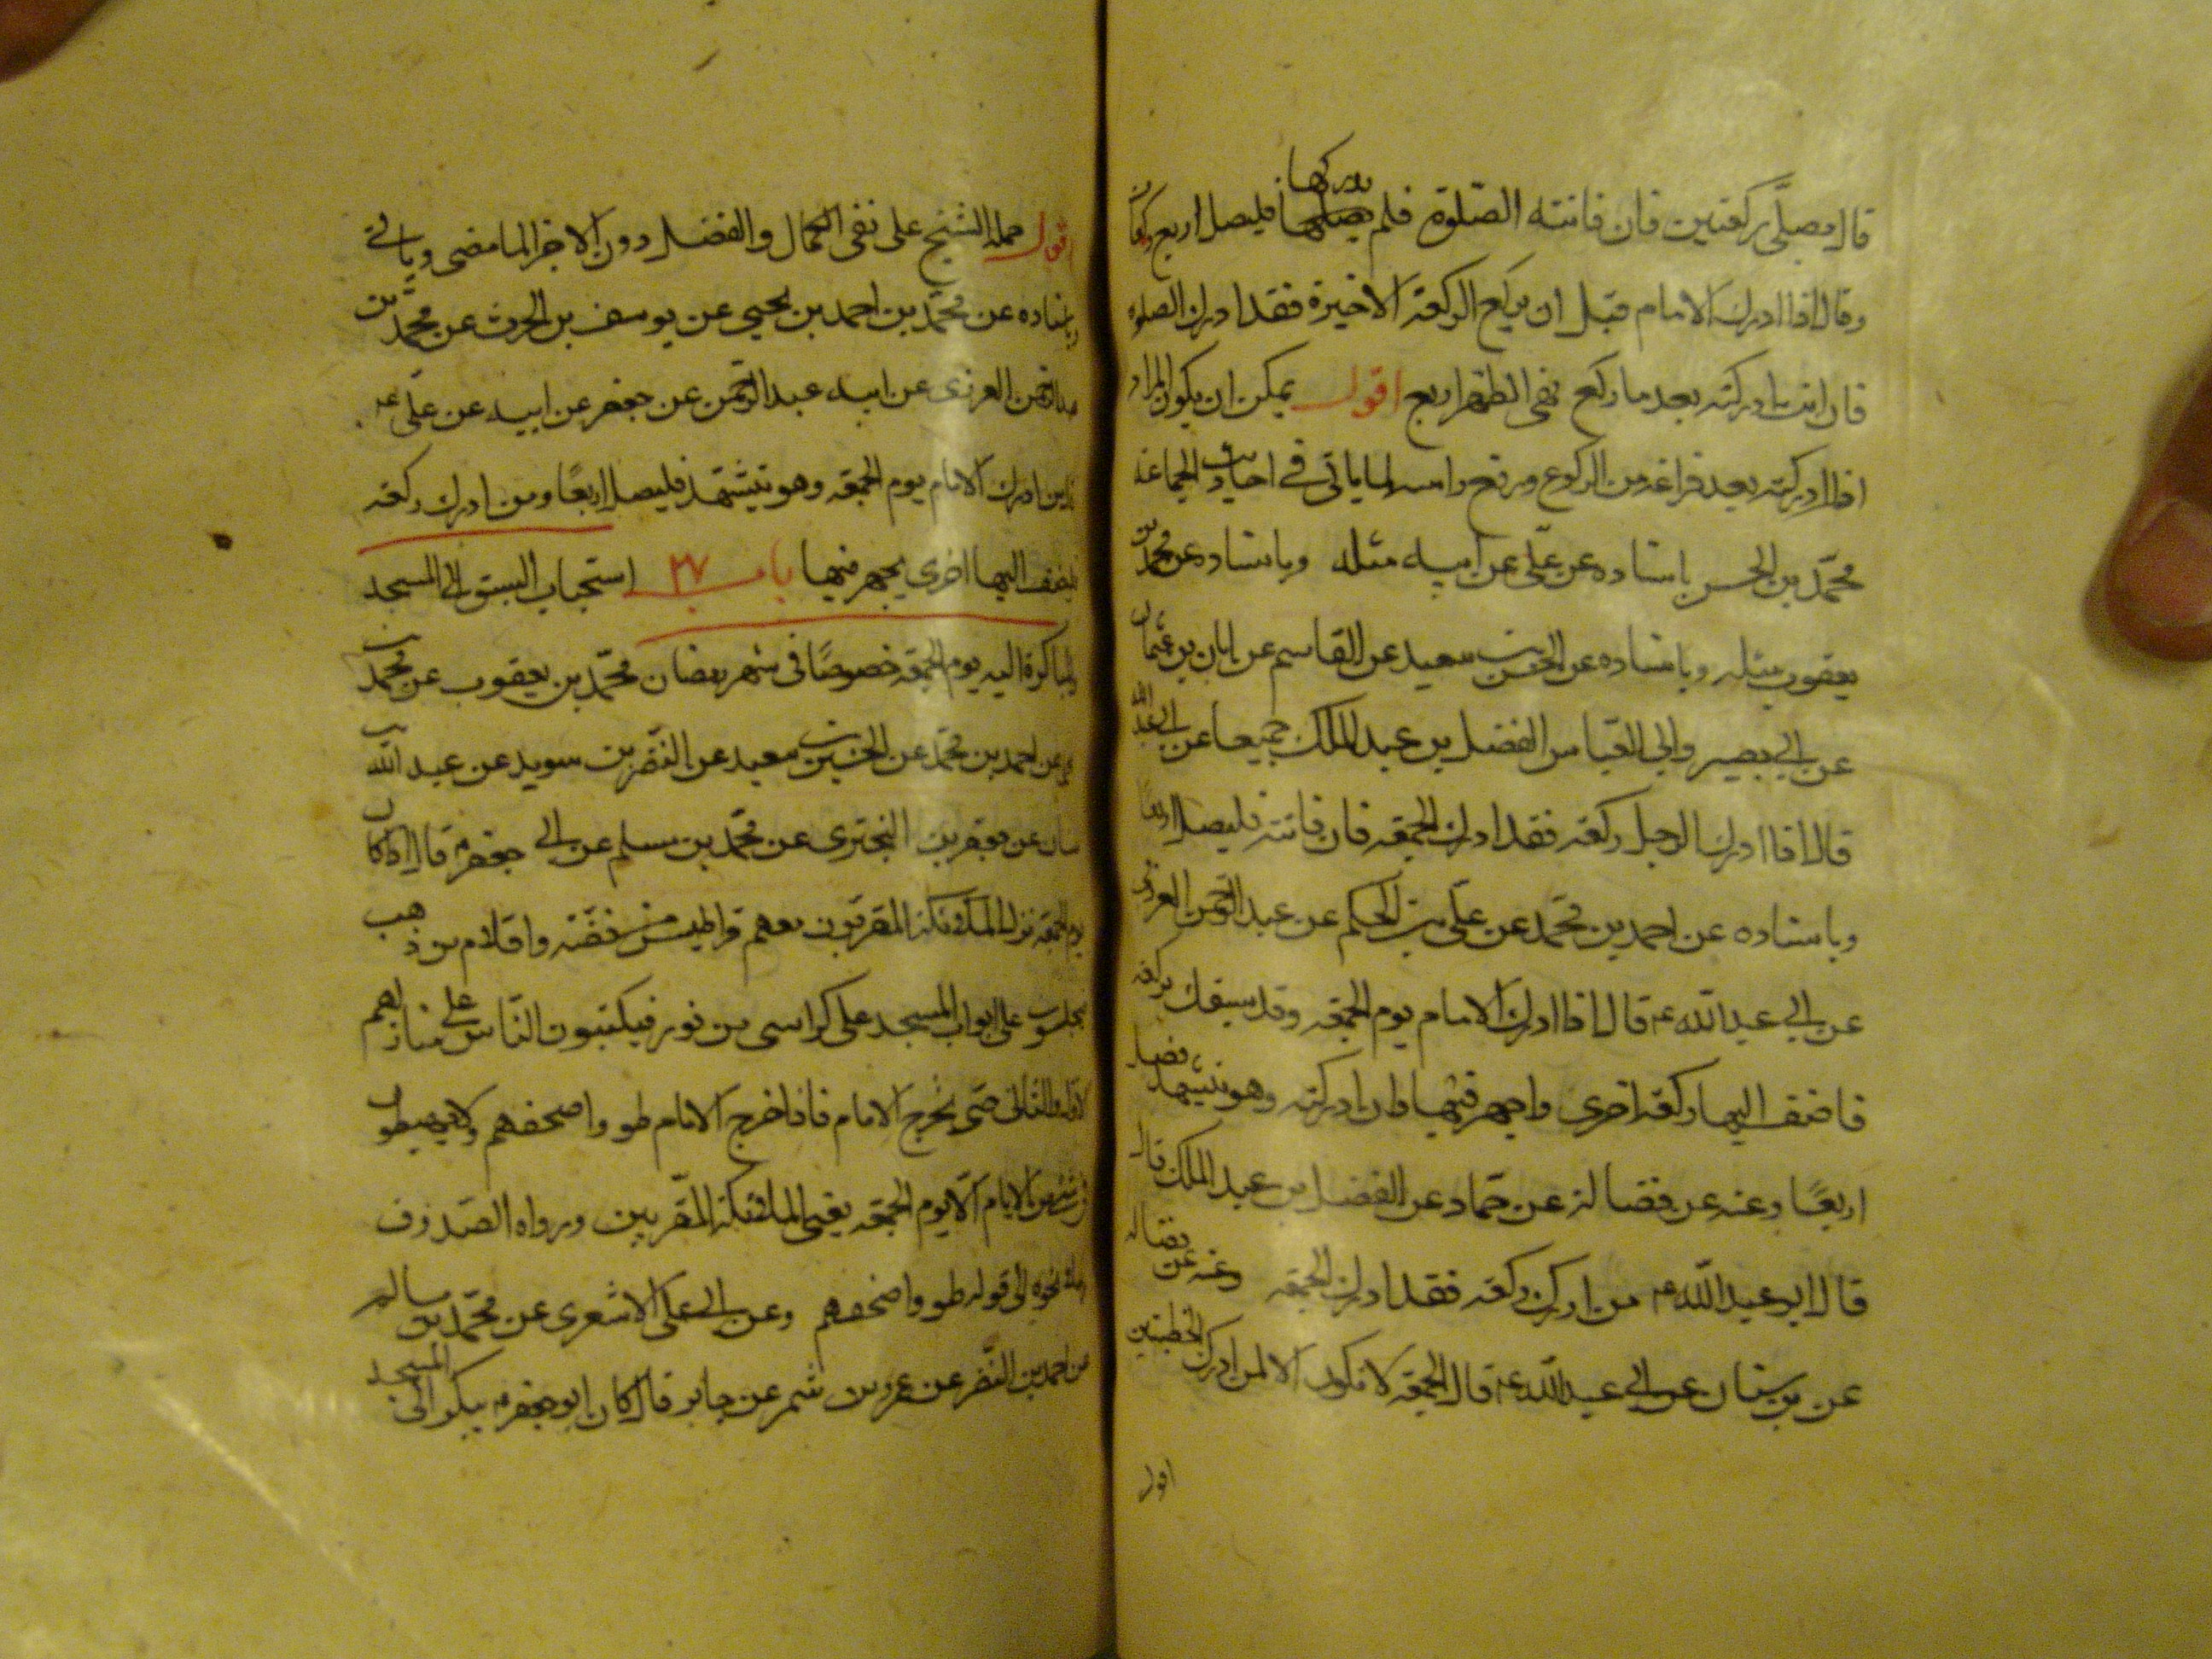 يدركها
قال يصلي ركعتين فان فاتته الصلوة فلم يصلها فليصل اربع ركعات
وقال اذا ادركت الامام قبل ان يركع الركعة الاخيرة فقد ادركت الصلوة
فان انت ادركته بعد ما ركع فهي الظهر اربع اقول يمكن ان يكون المراد
اذا ادركته بعد فراغه من الركوع ورفع راسه لما ياتي في احاديث الجماعة
محمد بن الحسن باسناده عن علي عن ابيه مثله وباسناده عن محمد بن
يعقوب مثله وباسناده عن الحسين بن سعيد عن القاسم عن ابان بن عثمان
عن ابي بصير وابي العباس الفضل بن عبد الملك جميعا عن ابي عبد الله
قال اذا ادرك الرجل ركعة فقد ادرك الجمعة فان فاتته فليصل اربعا
وباسناده عن احمد بن محمد عن علي بن الحكم عن عبد الرحمن العرزمي
عن ابي عبد الله ع قال اذا ادركت الامام يوم الجمعة وقد سبقك بركعة
فاضف اليها ركعة اخرى واجهر فيها وان ادركته وهو يتشهد فصل
اربعًا وعنه عن فضالة عن حماد عن الفضل بن عبد الملك قال
قال ابو عبد الله ع من ادرك ركعة فقد ادرك الجمعة وعنه عن فضالة
عن بن سنان عن ابي عبد الله ع قال الجمعة لا تكون الا لمن ادرك الخطبتين
اقول
اقول حمله الشيخ على نفي الكمال والفضل دون الاجزا لما مضى وياتي
وباسناده عن محمد بن احمد بن يحيى عن يوسف بن الحرث عن محمد بن
عبد الرحمن العرزمي عن ابيه عبد الرحمن عن جعفر عن ابيه عن علي ع
قال من ادرك الامام يوم الجمعة وهو يتشهد فليصل اربعًا ومن ادرك ركعة
فليضف اليها اخرى يجهر فيها باب ٢٧ استحباب السبق الى المسجد
والمباكرة اليه يوم الجمعة خصوصًا في شهر رمضان محمد بن يعقوب عن محمد بن
يحيى عن احمد بن محمد عن الحسين بن سعيد عن النضر بن سويد عن عبد الله بن
سنان عن جعفر بن البختري عن محمد بن مسلم عن ابي جعفر ع قال اذا كان
يوم الجمعة نزل الملائكة المقربون معهم قراطيس من فضة واقلام من ذهب
فيجلسون على ابواب المسجد على كراسي من نور فيكتبون الناس على منازلهم
الاول والثاني حتى يخرج الامام فاذا خرج الامام طووا صحفهم ولا يهبطون
في شيء من الايام الا يوم الجمعة يعني الملائكة المقربين ورواه الصدوق
مرسلا نحوه الى قوله طووا صحفهم وعن ابي علي الاشعري عن محمد بن سالم
عن احمد بن النضر عن عمرو بن شمر عن جابر قال كان ابو جعفر ع يبكر الى المسجد